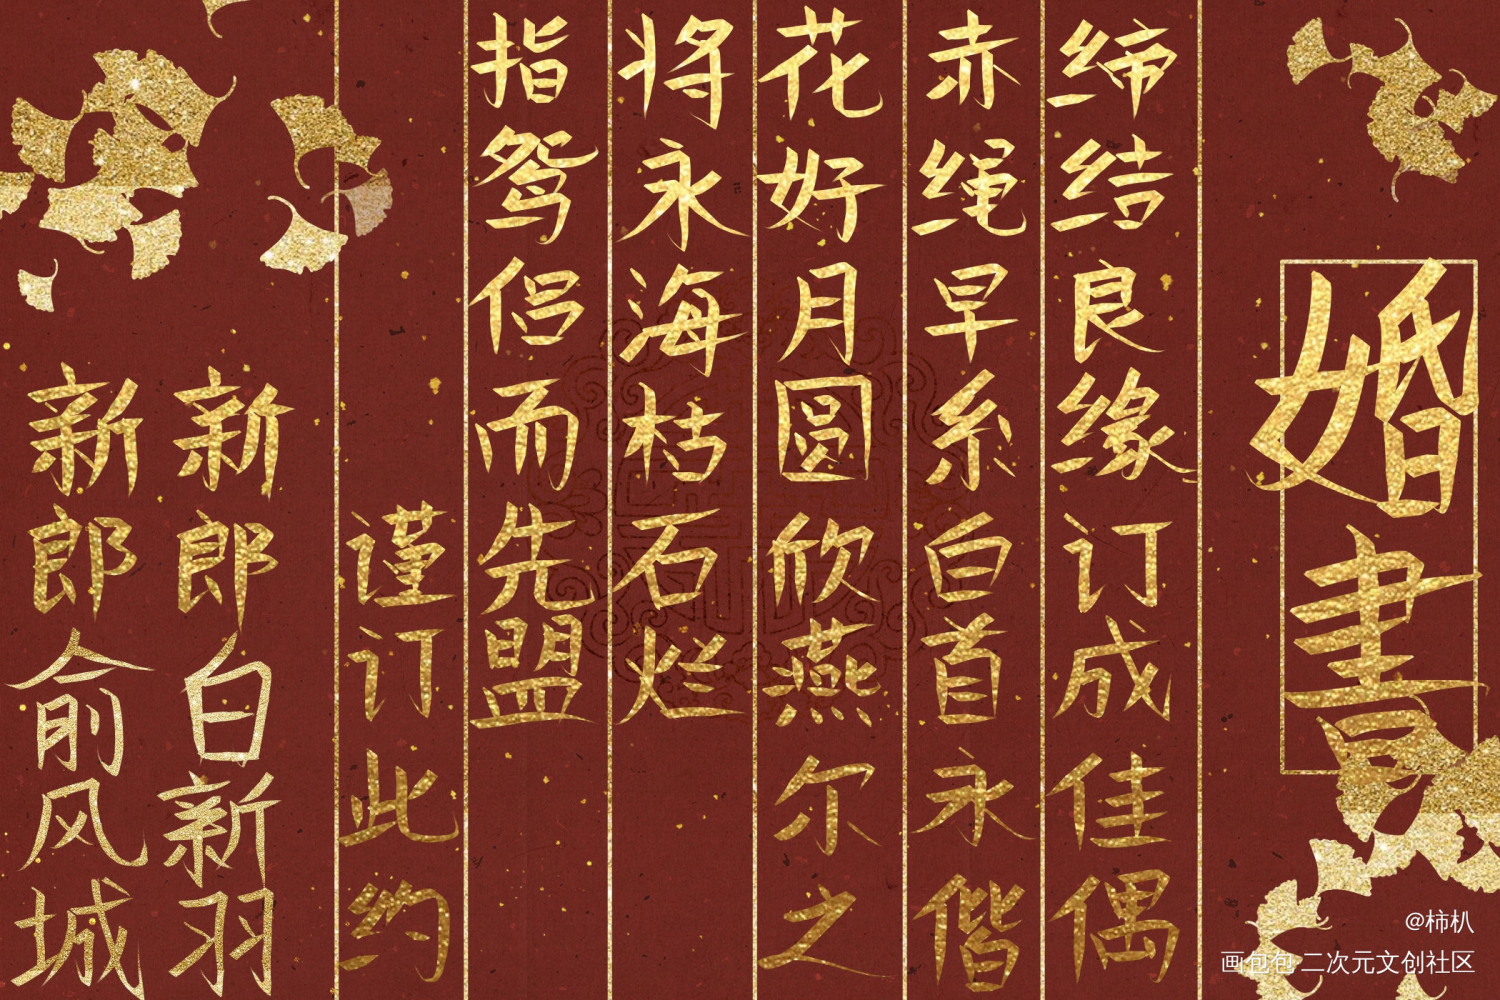 婚書
缔结良缘订成佳偶
赤绳早系白首永偕
花好月圆欣燕尔之
将永海枯石烂
指鸳侣而先盟
谨订此约
新郎白新羽
新郎俞风城
@柿朳
画包包 二次元文创社区